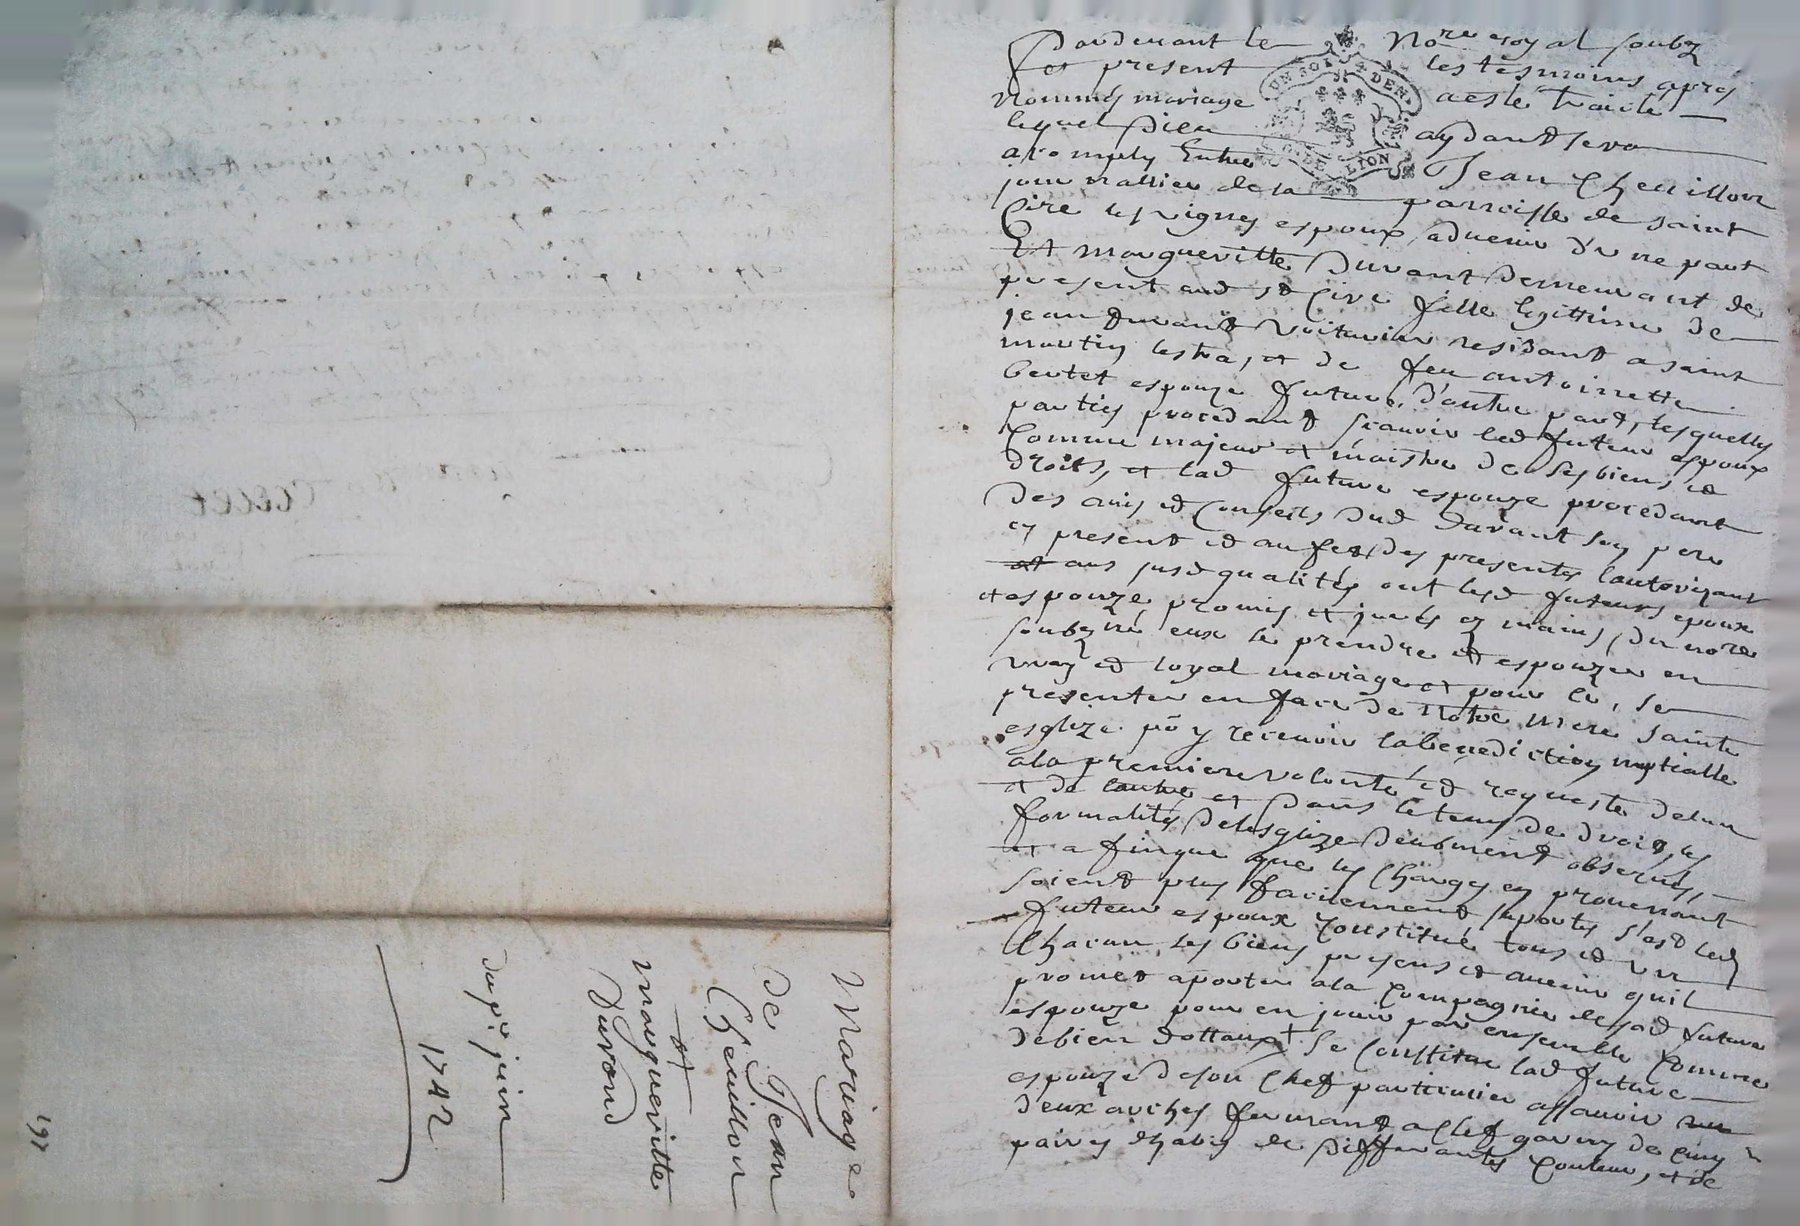 Mariage
de Jean
Cheuillon
et
margueritte
Durand
du pr juin
1742
197
Pardeuant le Nore royal soubz
les tesmoins apres
nommés mariage a esté traicté
lequel Dieu aydant sera
acomply Entre Jean Cheuillon
journallier de la parroisse de saint
Cire les vignes espoux aduenir d'une part
Et margueritte Durant demeurant de
present aud st Cire fille legittime de
jean durand voiturier residant a saint
martin lestra, et de feu antoinette
Bertet espouze future, d'autre part, lesquelles
parties procedant scauoir led futeur espoux
comme majeur et maistre de ses biens et
droits, et lad future espouze procedant
des auis et Conseils dud Durant son pere
cy present et au fet des presentes l'autorizant
aus susd qualités ont lesd futeurs epoux
et espouze promis et jurés es mains du nore
soubz né eux se prendre et espouzer en
vray et loyal mariage et pour ce, se
presenter en face de Notre mere sainte
esglize po y receuoir la benediction nuptialle
a la premiere volonté et requeste de lun
et de lautre et dans le tems de droit, les
formalités de lesglize deubment obserués,
et a fin que les charges en prouenant
soient plus facilement suportés s'est led
futeur espoux Constitué tous et un
chacun ses biens presens et auenir quil
promet aporter a la Compagnie de sad future
espouze pour en jouir par ensemble comme
de bien dottaux se Constitue lad future
espouze de son chef particulier assauoir
deux arches fermant a clef garny de cinq
paires d'habis de differantes couleur, et de